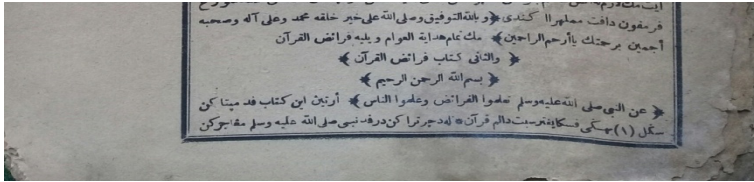 فرمفون دافت ممليهرا كندى ﴿ وبالله التوفيق وصلى الله على خير خلقه محمد وعلى آله وصحبه
أجمعين برحمتك ياأرحم الراحمين ﴾ مك تمام هداية العوام ويليه فرائض القرآن
﴿ والثانى كتاب فرائض القرآن ﴾
﴿ بسم الله الرحمن الرحيم ﴾
﴿ عن النبى صلى الله عليه وسلم تعلموا الفرائض وعلموا الناس ﴾ أرتين اين كتاب فد ميتاكن
سكل (١) فسكايفتر سبت دالم قرآن * له دچرتراكن درفد نبى صلى الله عليه وسلم مغاجركن